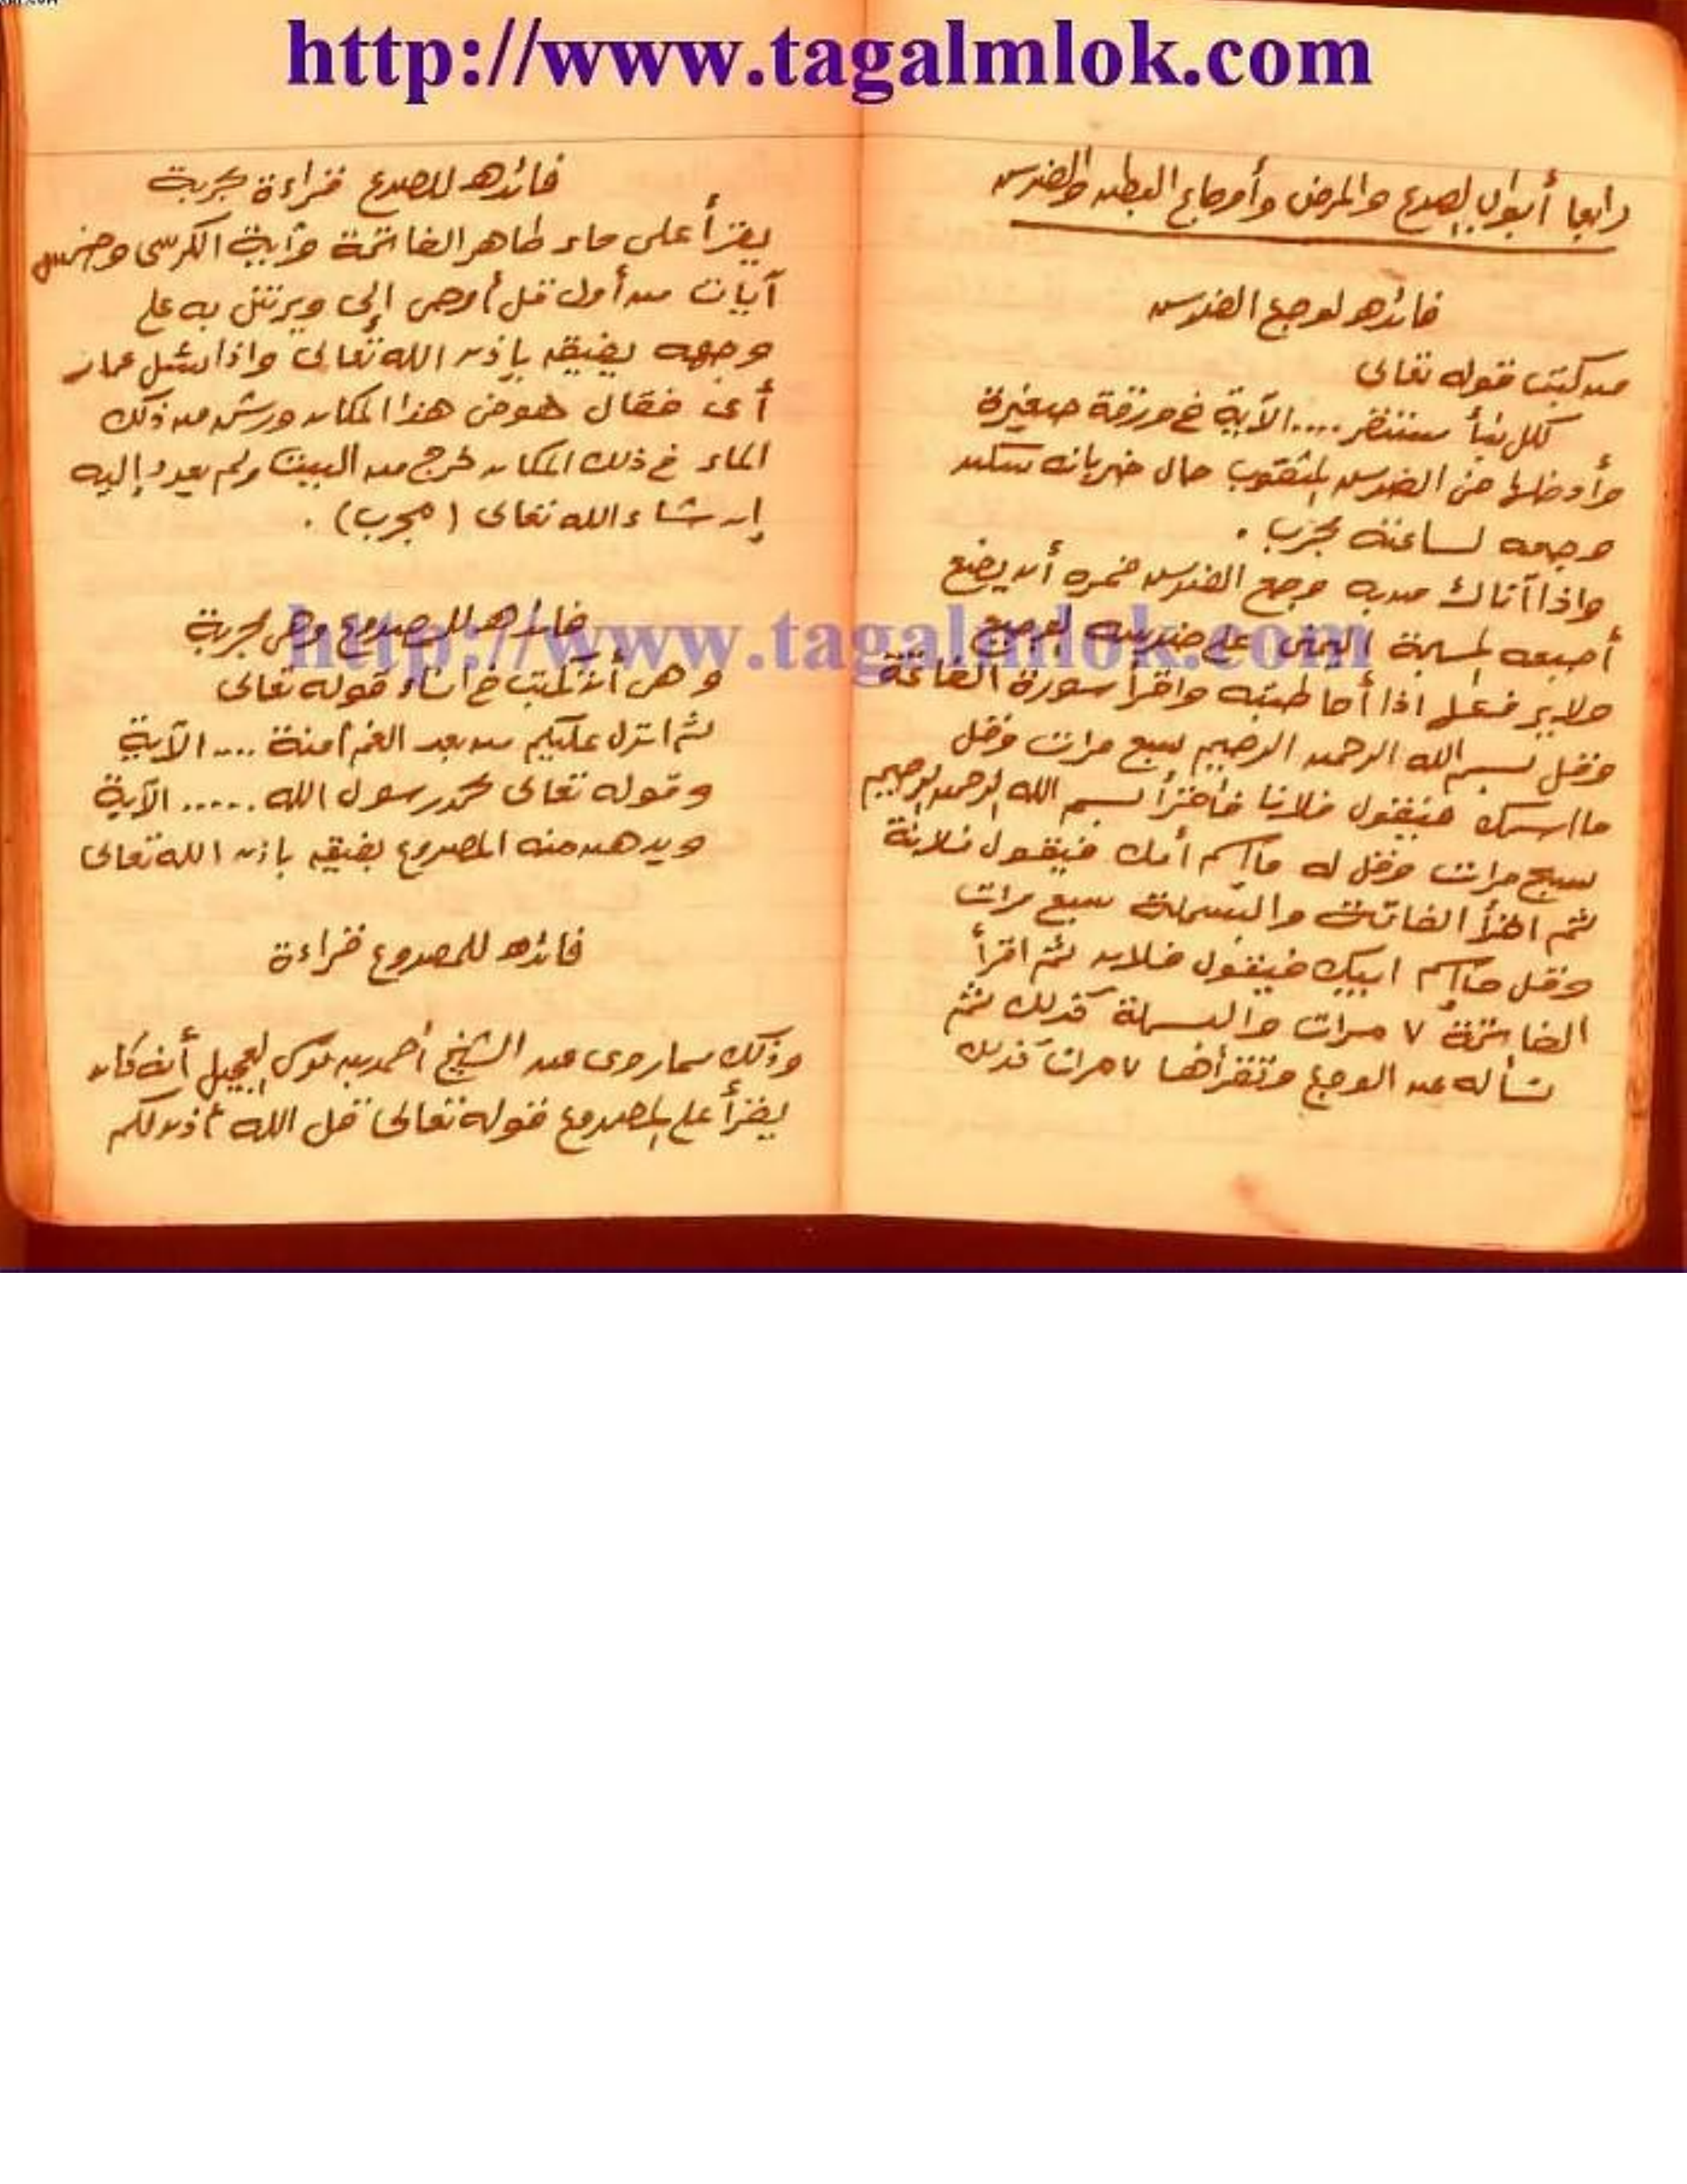 http://www.tagalmlok.com
رابعا أبواب الصرع والمرض وأوجاع البطن والضرس
فائده لوجع الضرس
من كتب قوله تعالى
لكل نبأ مستقر .... الآية فى ورقة صغيرة
وأدخلها فى الضرس المثقوب حال ضربانه سكن
وجعه لساعته مجرب .
واذا آتاك من به وجع الضرس فمره أن يضع
أصبعه المسبحة اليمنى على ضرسه الوجيع
ولا يرفعها اذا أخاطبته واقرأ سورة الفاتحة
وقل بسم الله الرحمن الرحيم سبع مرات وقل
ما اسمك فيقول فلانا فأقرأ بسم الله الرحمن الرحيم
سبع مرات وقل له ما اسم أمك فيقول فلانة
ثم اقرأ الفاتحة والبسملة سبع مرات
وقل ما اسم ابيك فيقول فلان ثم اقرأ
الفاتحة ٧ مرات والبسملة كذلك ثم
تسأله عن الوجع وتقرأها ٧ مرات كذلك
فائده للصرع قراءة مجربة
يقرأ على ماء طاهر الفاتحة وآية الكرسى وخمس
آيات من أول قل أوحى إلى ويرش به على
وجهه يفيق بإذن الله تعالى واذا
أى فقال هوض هذا المكان ورش من ذلك
الماء فى ذلك المكان خرج من البيت ولم يعود إليه
إن شاء الله تعالى (مجرب) .
فائده للمصروع وهى مجربة
http://www.tagalmlok.com
وهى أن تكتب فى اناء قوله تعالى
ثم انزل عليكم من بعد الغم أمنة .... الآية
وقوله تعالى محمد رسول الله ..... الآية
ويدهن منه المصروع يفيق باذن الله تعالى
فائده للمصروع قراءة
وذلك مما روى عن الشيخ أحمد بن موسى العجيل أنه كان
يقرأ على المصروع قوله تعالى قل الله أذن لكم